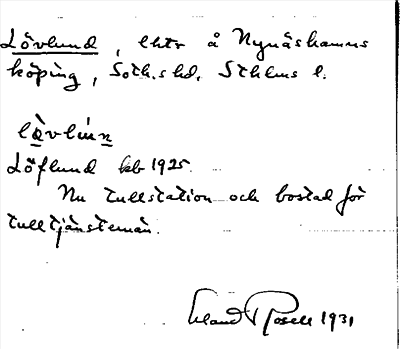 Lövlund, lht å Nynäshamns
köping, Soth. hd, Sthlms l.
lövlinn
Löflund kb 1925.
Nu tullstation och bostad för
tulltjänstemän.
Erland Rosell 1931